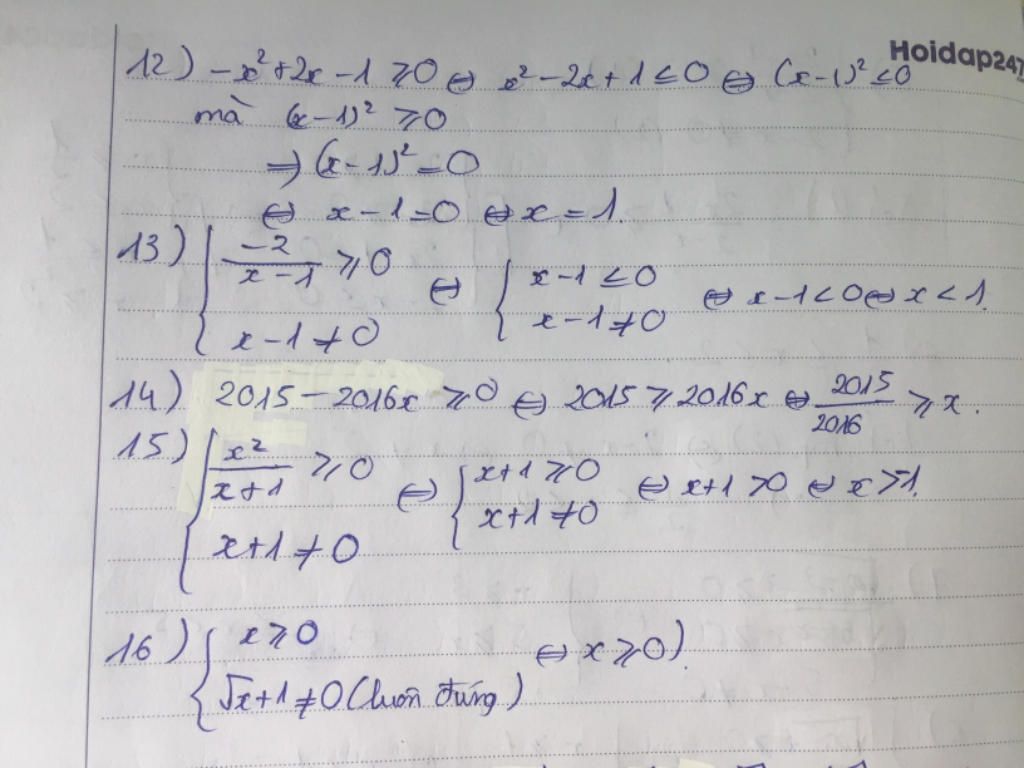 Hoidap247
12) -x² + 2x - 1 ≥ 0 ⇔ x² - 2x + 1 ≤ 0 ⇔ (x-1)² ≤ 0
mà (x-1)² ≥ 0
⇒ (x-1)² = 0
⇔ x - 1 = 0 ⇔ x = 1.
13) { -2/(x-1) ≥ 0 ⇔ { x-1 ≤ 0 ⇔ x-1 < 0 ⇔ x < 1.
x - 1 ≠ 0 x - 1 ≠ 0
14) 2015 - 2016x ≥ 0 ⇔ 2015 ≥ 2016x ⇔ 2015/2016 ≥ x.
15) { x²/(x+1) ≥ 0 ⇔ { x+1 ≥ 0 ⇔ x+1 > 0 ⇔ x > -1.
x+1 ≠ 0 x+1 ≠ 0
16) { x ≥ 0 ⇔ x ≥ 0).
√x + 1 ≠ 0 (luôn đúng)